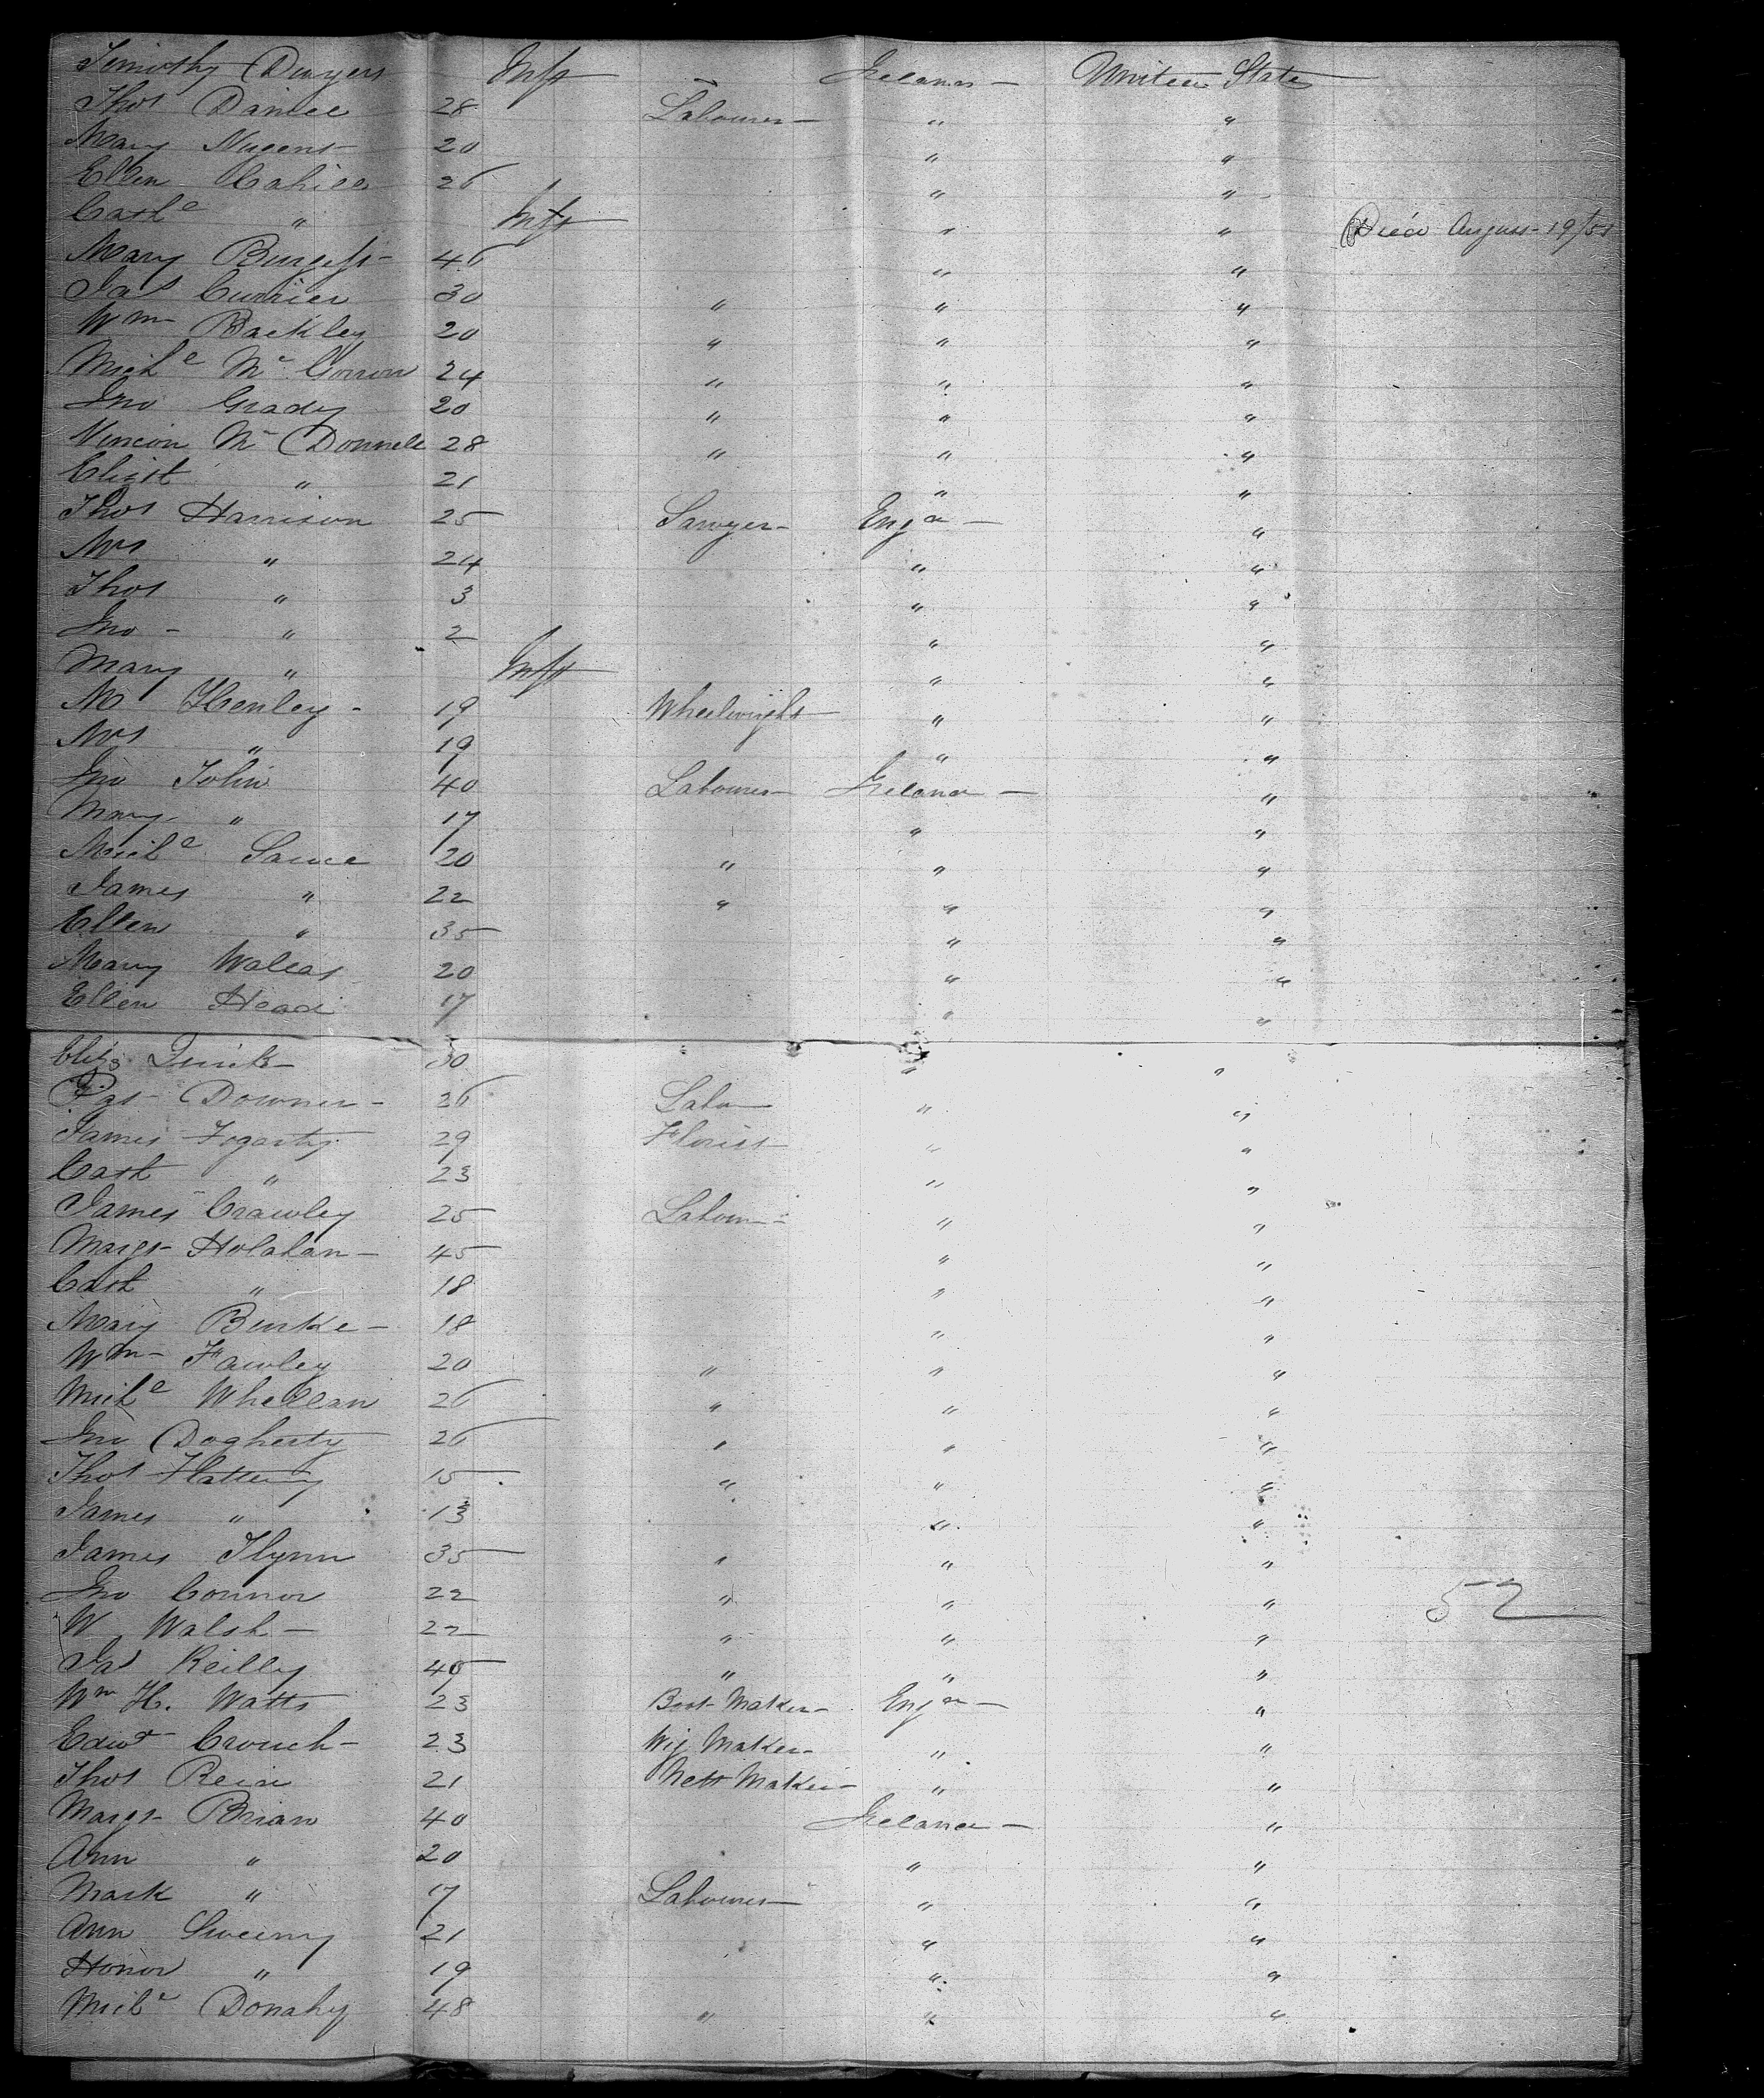 Timothy Dwyers Inft Ireland — United States
Thos Daniel 28 Labourer — " "
Mary Nugent 20 " "
Ellen Cahill 26 " "
Cathe " Inft " " Died August 19/51
Mary Burgess 46 " "
Jas Currier 30 " " "
Wm Backley 20 " " "
Michl Mc 24 " " "
Jno Grady 20 " " "
Mc Donnell 28 " " "
Elizt " 21 " "
Thos Harrison 25 Sawyer — Engd — "
Mrs " 24 " "
Thos " 3 " "
Jno — " 2 " "
Mary " Inft " "
M Henley - 19 Wheelwright " "
Mrs " 19 " "
Jno Tobin 40 Labourer — Ireland — "
Mary " 17 " "
Michl 20 " " "
James " 22 " " "
Ellen " 35 " "
Mary 20 " "
Ellen Head 17 " "
Eliza Quirk 30 " "
Pat Downer — 26 Labr " "
James Fogarty 29 Florist " "
Cath " 23 " "
James Crawley 25 Labour — " "
Margt Holahan — 45 " "
Cath " 18 " "
Mary Burke — 18 " "
Wm Fawley 20 " " "
Michl Whellan 26 " " "
Jno Dogherty 26 " " "
Thos Flattery 15 " " "
James " 13 " "
James Flynn 35 " " "
Jno Connor 22 " " "
52
W Walsh — 22 " " "
Jas Reilly 45 " " "
Wm H. Watts 23 Boot Maker — Engd — "
Edwd Crouch — 23 Wig Maker — " "
Thos 21 Nett Maker — " "
Margt Brian 40 Ireland — "
Ann " 20 " "
Mark " 17 Labourer — " "
Ann Sweeny 21 " "
Honor " 19 " "
Michl Donahy 48 " " "